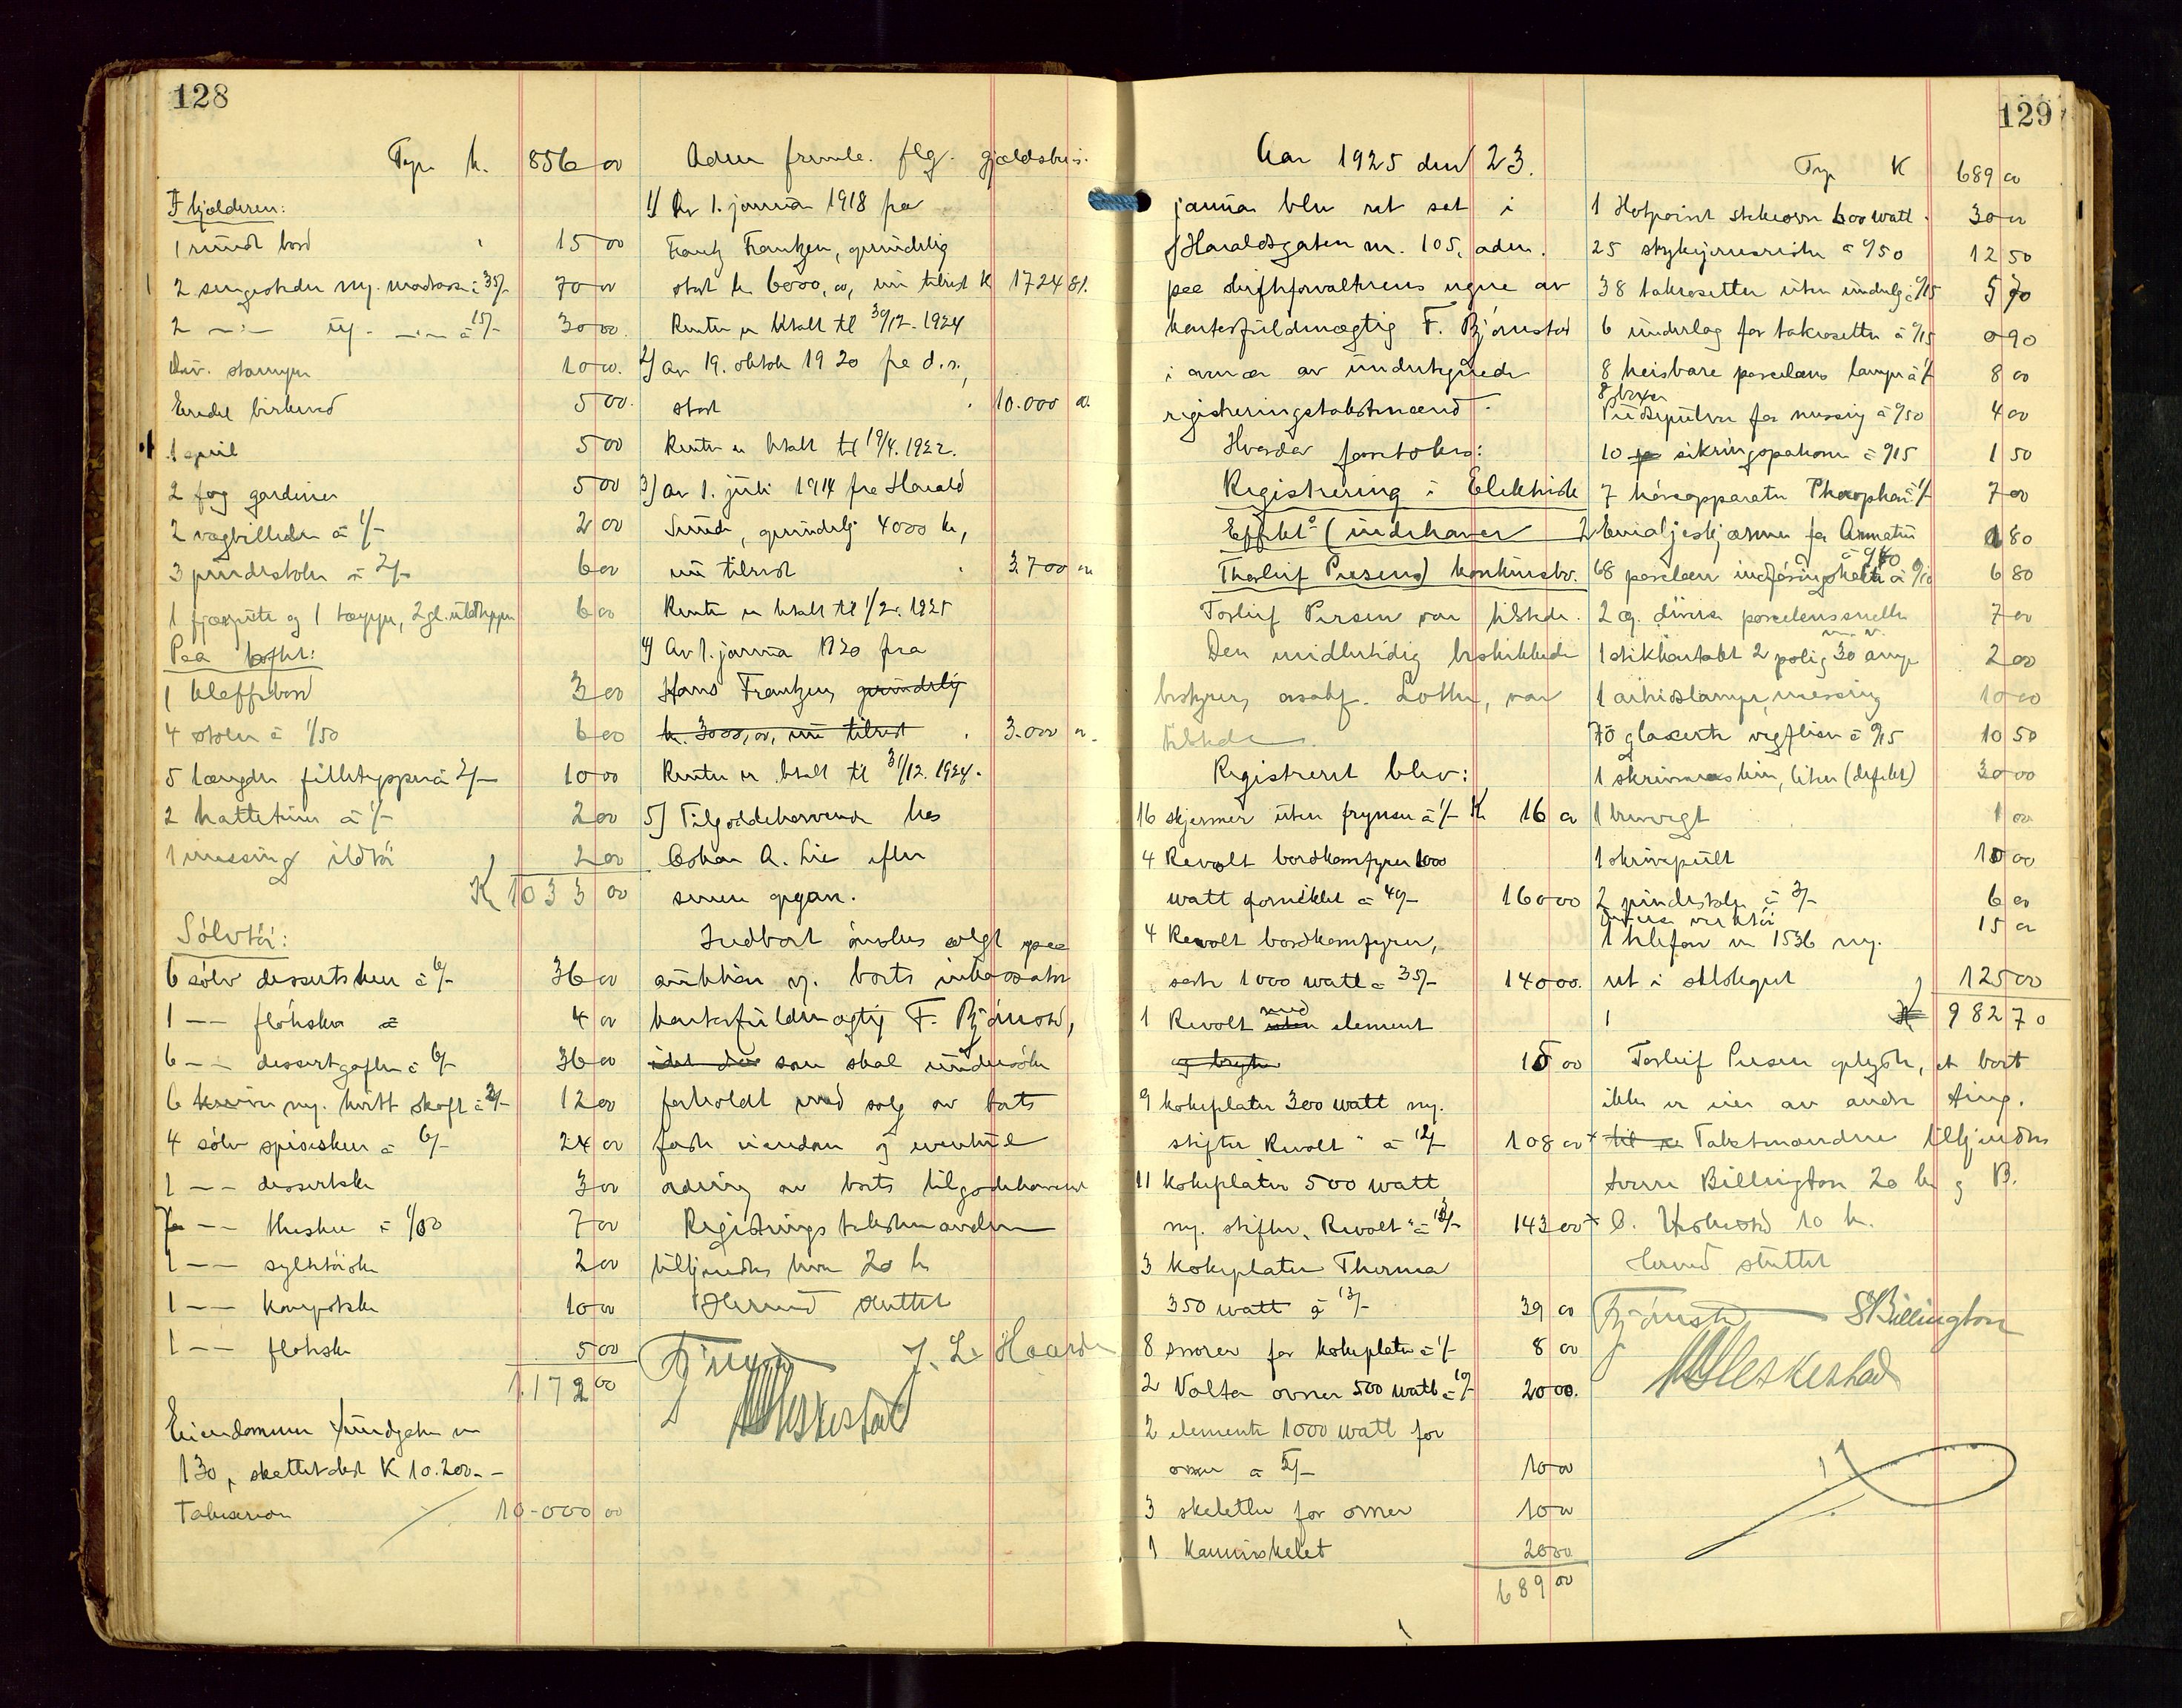 128
Trp. kr. 856 00
I kjælderen:
1 rundt bord 15 00
2 sengesteder m. madrass à 35/- 70 00
2 -"- u. -"- à 15/- 30 00
Div. stamper 10 00
Endel birkeved 5 00
1 speil 5 00
2 fag gardiner 5 00
2 vægbilleder à 1/- 2 00
3 pindestoler à 2/- 6 00
1 fjærpute og 1 tæppe, 2 gl. uldtepper 6 00
Paa loftet:
1 klaffebord 3 00
4 stoler à 1/50 6 00
5 længder filletepper à 2/- 10 00
2 hatteturer à 1/- 2 00
1 messing ildtøi 2 00
Kr 1033 00
Sølvtøi:
6 sølv dessertskeer à 6/- 36 00
1 -- fløtske 4 00
6 -- dessertgafler à 6/- 36 00
6 kniver m. hvitt skaft à 2/- 12 00
4 sølv spiseskeer à 6/- 24 00
1 -- dessertske 3 00
7 -- theskeer à 1/00 7 00
1 -- syltetøiske 2 00
1 -- kompotske 10 00
1 -- fløtske 5 00
1.172 00
Eiendommen Sundgaten nr
130, skattetakst K 10.200.-
Takseres 10.000 00
Aden fremle. flg. gjældsbrev:
1) Av 1. januar 1918 fra
Frantz Frantzen, oprindelig
stort kr 6000,00, nu tilrest K 1724 81.
Renter er betalt til 30/12. 1924
2) Av 19. oktob 1920 fra d.s.,
stort 10.000 00.
Renter er betalt til 19/4. 1922.
3) Av 1. juli 1914 fra Harald
Sunde, oprindelig 4000 kr,
nu tilrest 3.700 00
Renter er betalt til 1/2. 1925
4) Av 1. januar 1920 fra
Hans Frantzen, oprindelig
kr. 3000,00, nu tilrest 3.000 00
Renter er betalt til 31/12. 1924.
5) Tilgodehavende hos
Oskar A. Lie efter
senere opgave.
Indbort ønskes solgt paa
auktion ved borets inkassator
kontorfuldmægtig F. Bjørnstad,
idet der som skal undersøke
forholdet med salg av borets
faste eiendom og eventuel
ordning av borets tilgodehavende
Registreringstakstmændene
tilkjendtes hver 20 kr
Hermed sluttet
J. L. Haarde
M Heskestad
129
Aar 1925 den 23.
januar blev ret sat i
Haraldsgaten nr. 105, adm.
paa skifteforvalterens vegne av
kontorfuldmægtig F. Bjørnstad
i nærvær av undertegnede
registreringstakstmænd.
Hvorda foretokes:
Registrering i Elektrisk
Effekt" (indehaver
Thorleif Persen) konkursbo.
Torleif Persen var tilstede.
Den midlertidig beskikkede
bestyrer, overretssakf. Lothe, var
tilstede.
Registreret blev:
16 skjermer uten frynser à 1/- Kr 16 00
4 Revolt bordkomfyrer 1000
watt forniklet à 40/- 160 00
4 Revolt bordkomfyrer,
sorte 1000 watt à 35/- 140 00.
1 Revolt med uten element
og bryter 15 00
9 kokeplater 300 watt m.
stifter Revolt" à 12/- 108 00
11 kokeplater 500 watt
m. stifter "Revolt" à 13/- 143 00
3 kokeplater Therma
350 watt à 13/- 39 00
8 snorer for kokeplater à 1/- 8 00
2 Volta ovner 500 watt à 10/- 20 00.
2 elementer 1000 watt for
ovner à 5/- 10 00
3 skeletter for ovner 10 00
1 kaminskelet 20 00
689 00
Trp K 689 00
1 Hotpoint stekeovn 600 watt 30 00
25 strykejernsrister à 0/50 12 50
38 takrosetter uten underlag à 0/15 5 70
6 underlag for takrosetter à 0/15 0 90
8 heisbare porcelæns lamper à 1/- 8 00
8 bokser
Pudsepulver for messing à 0/50 4 00
10 sikringspatroner à 0/15 1 50
7 høreapparater à 1/- 7 00
2 Emaljeskjærmer for Armatur
à 0/90 1 80
68 porcelæn indføringspiper à 0/10 6 80
2 æ. diverse porcelenssneller 7 00
1 stikkontakt 2 polig 30 amp 2 00
1 arbeidslampe, messing 10 00
70 glaserte vegfliser à 0/15 10 50
1 skrivemaskin, liten (defekt) 30 00
1 brevvegt 1 00
1 skrivepult 10 00
2 pindestoler à 3/- 6 00
Diverse verktøi 15 00
1 telefon nr 1536 m.
ret i stolkeput 125 00
982 70
Torleif Persen oplyste, at boet
ikke er eier av andre ting.
Takstmændene tilkjendtes
Sverre Billington 20 kr og B.
10 kr.
Hermed sluttet
Bjørnstad S Billington
M Heskestad